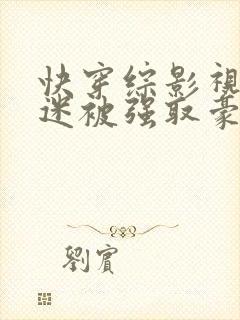 快穿綜影視
迷被强取豪
劉賓